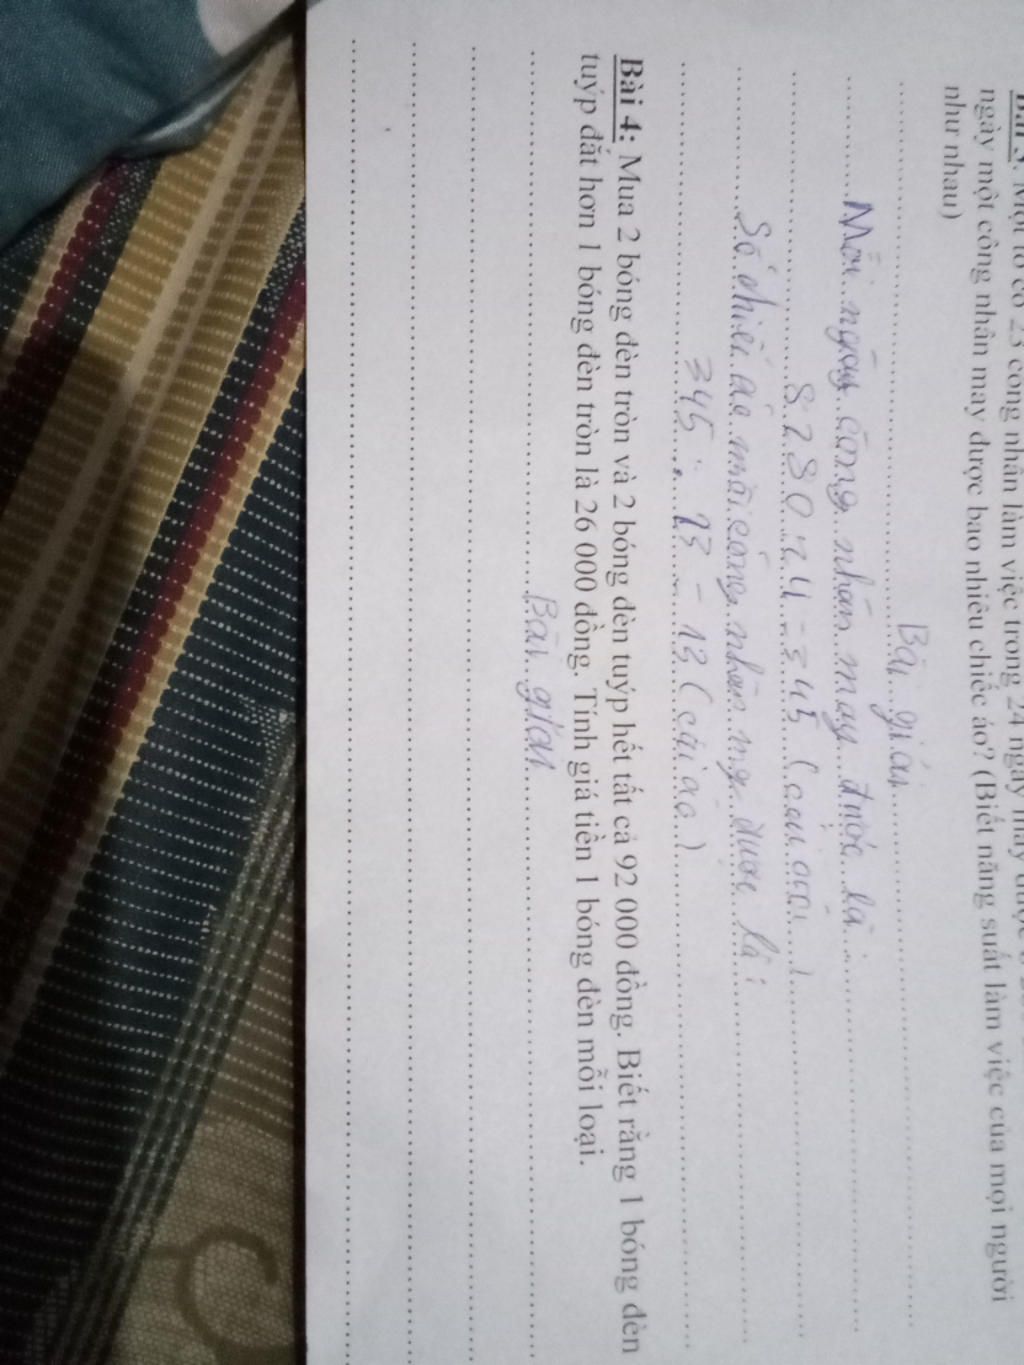 Bài 3: Một tổ có 23 công nhân làm việc trong 24 ngày may được
ngày một công nhân may được bao nhiêu chiếc áo? (Biết năng suất làm việc của mọi người
như nhau)
Bài giải
Mỗi ngày công nhân may được là:
8280 : 24 = 345 (cái áo)
Số chiếc áo mỗi công nhân may được là:
345 : 23 = 13 (cái áo)
Bài 4: Mua 2 bóng đèn tròn và 2 bóng đèn tuýp hết tất cả 92 000 đồng. Biết rằng 1 bóng đèn
tuýp đắt hơn 1 bóng đèn tròn là 26 000 đồng. Tính giá tiền 1 bóng đèn mỗi loại.
Bài giải